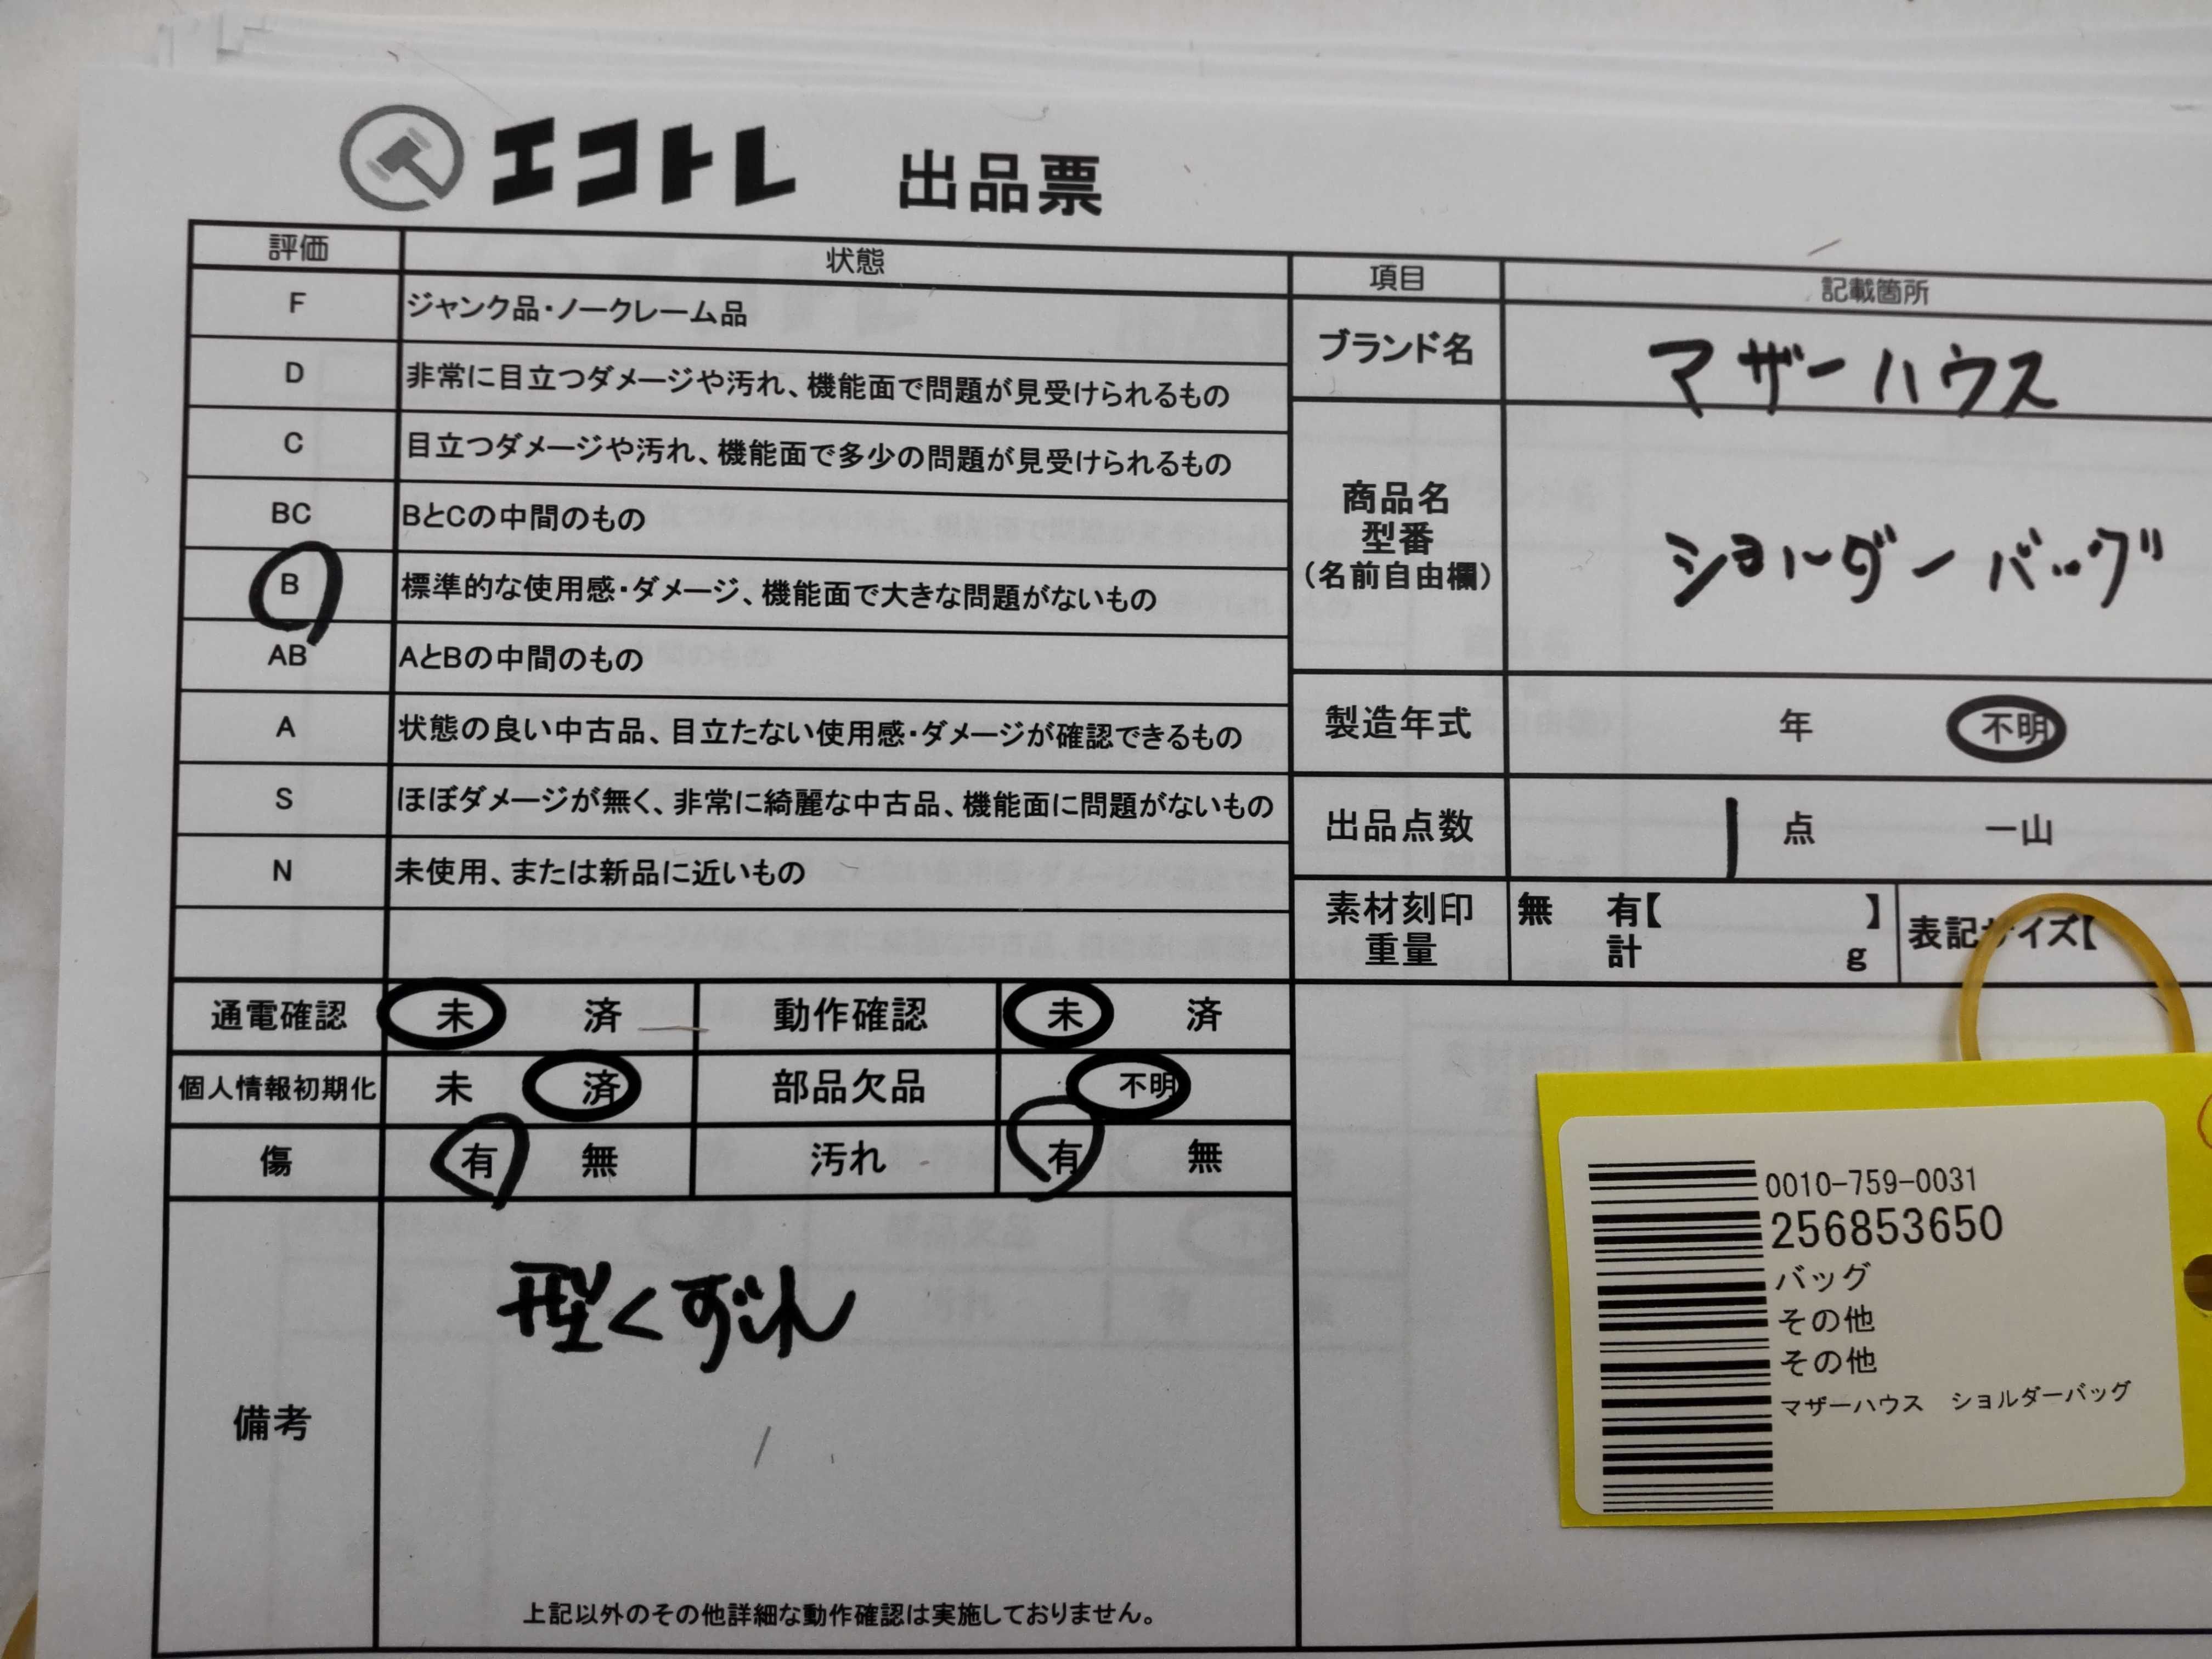 エコトレ 出品票
評価 状態
F ジャンク品・ノークレーム品
D 非常に目立つダメージや汚れ、機能面で問題が見受けられるもの
C 目立つダメージや汚れ、機能面で多少の問題が見受けられるもの
BC BとCの中間のもの
B 標準的な使用感・ダメージ、機能面で大きな問題がないもの
AB AとBの中間のもの
A 状態の良い中古品、目立たない使用感・ダメージが確認できるもの
S ほぼダメージが無く、非常に綺麗な中古品、機能面に問題がないもの
N 未使用、または新品に近いもの
通電確認 未 済 動作確認 未 済
個人情報初期化 未 済 部品欠品 不明
傷 有 無 汚れ 有 無
備考
型くずれ
上記以外のその他詳細な動作確認は実施しておりません。
項目 記載箇所
ブランド名 マザーハウス
商品名
型番
(名前自由欄)
ショルダーバッグ
製造年式 年 不明
出品点数 1 点 一山
素材刻印 無 有【 】
重量 計 g
表記サイズ【
0010-759-0031
256853650
バッグ
その他
その他
マザーハウス ショルダーバッグ